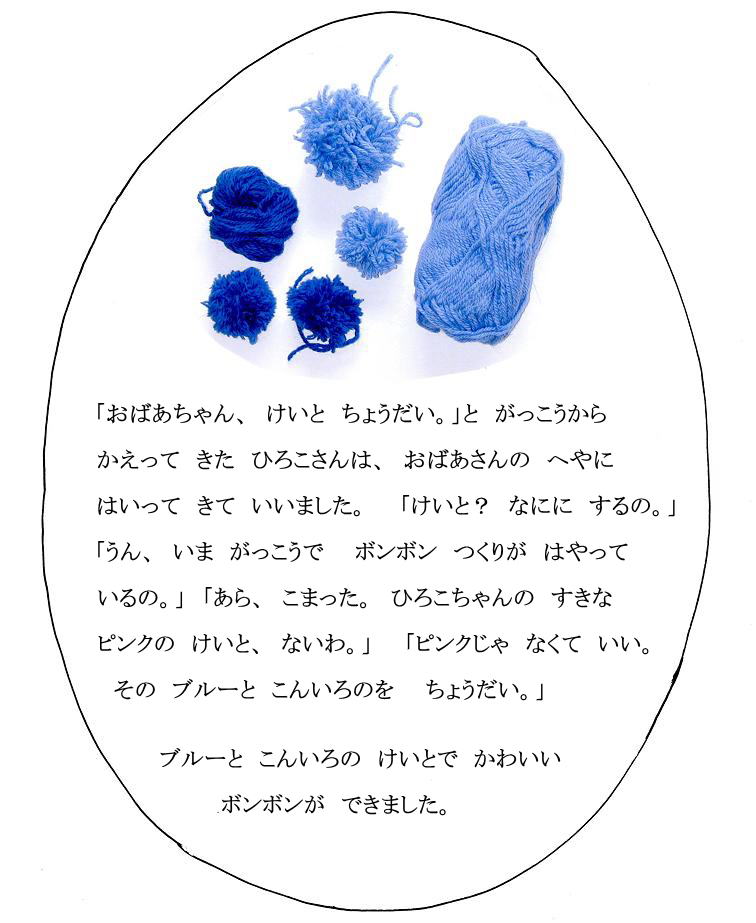 「おばあちゃん、 けいと ちょうだい。」と がっこうから
かえって きた ひろこさんは、 おばあさんの へやに
はいって きて いいました。 「けいと? なにに するの。」
「うん、 いま がっこうで ボンボン つくりが はやって
いるの。」 「あら、 こまった。 ひろこちゃんの すきな
ピンクの けいと、 ないわ。」 「ピンクじゃ なくて いい。
その ブルーと こんいろのを ちょうだい。」
ブルーと こんいろの けいとで かわいい
ボンボンが できました。